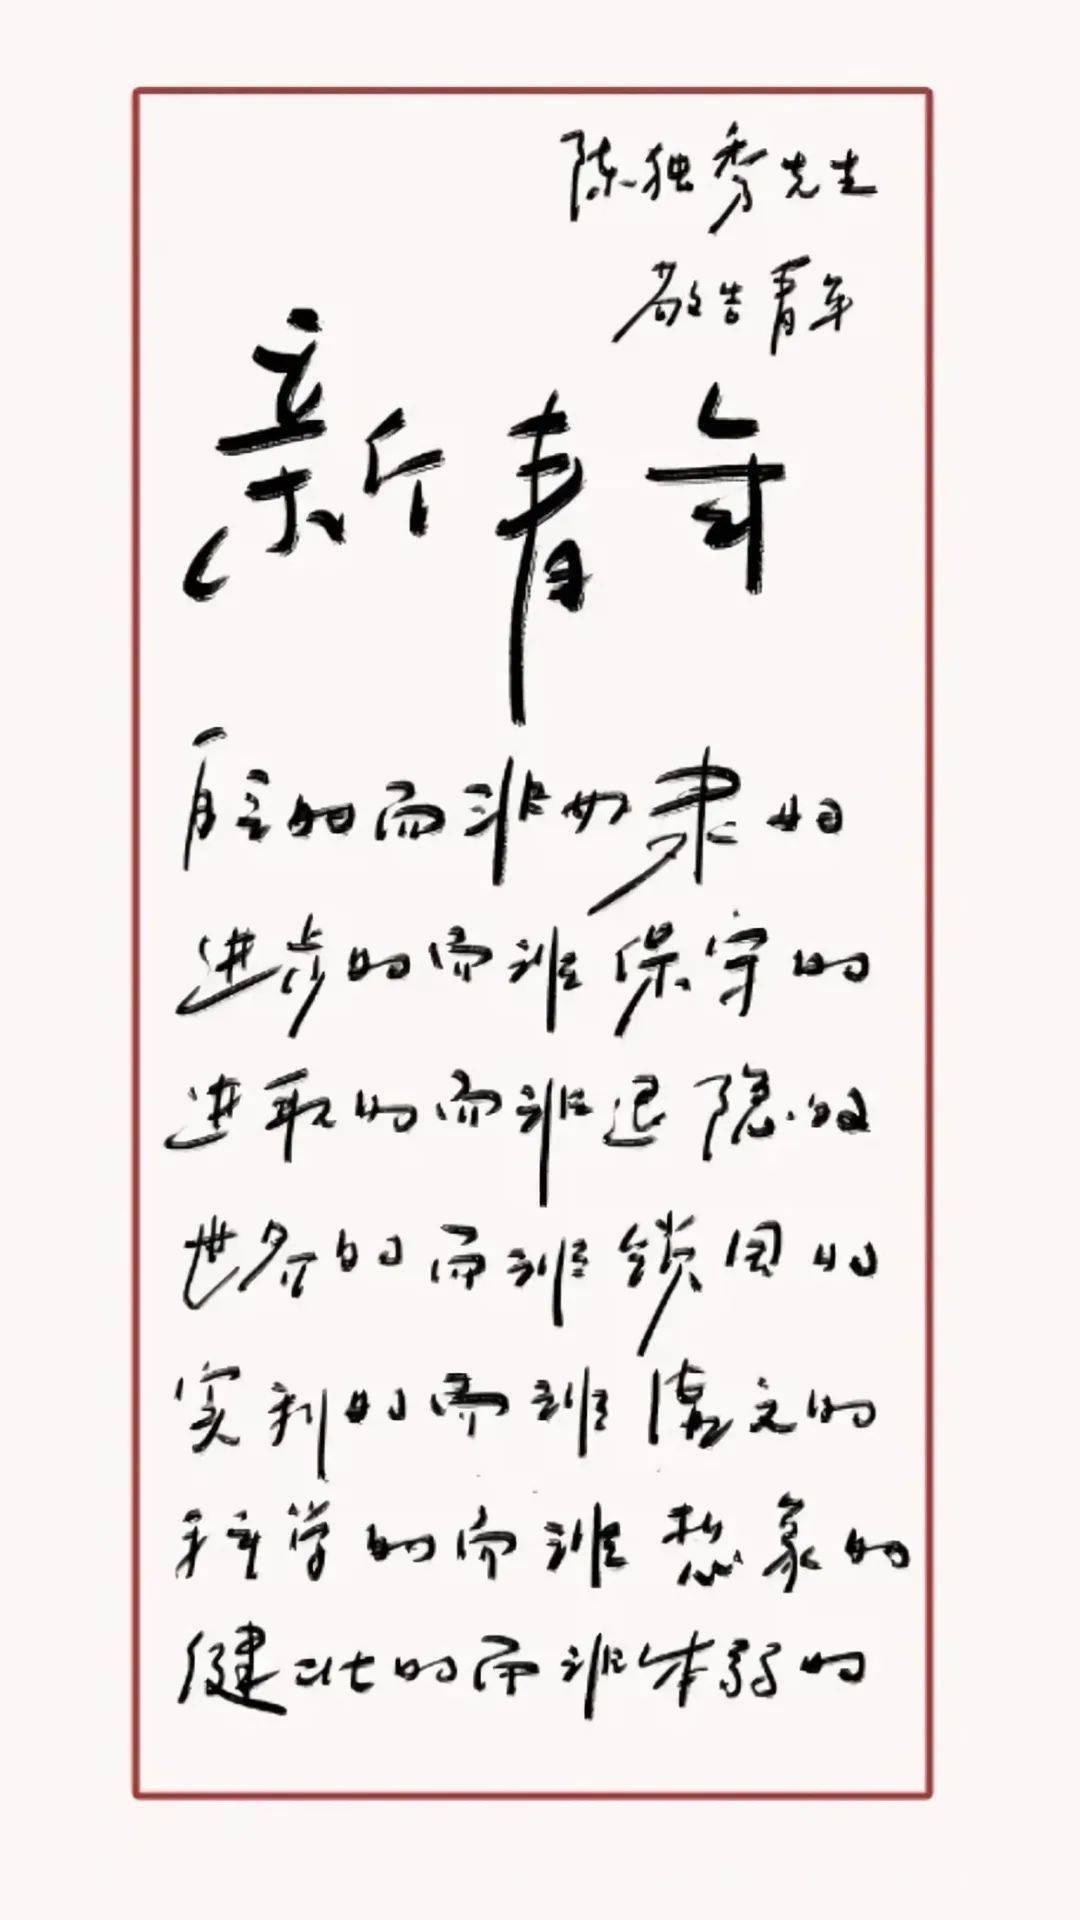 陈独秀先生
敬告青年
新青年
自主的而非奴隶的
进步的而非保守的
进取的而非退隐的
世界的而非锁国的
实利的而非虚文的
科学的而非想象的
健壮的而非体弱的